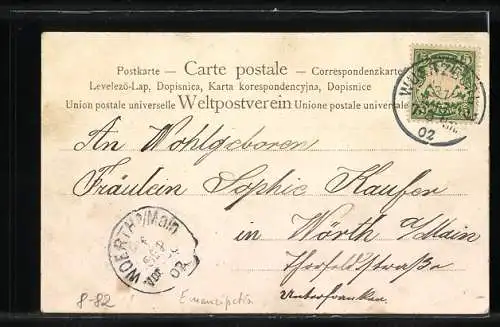 Postkarte — Carte postale — Correspondenzkarte
Levelező-Lap, Dopisnica, Karta korespondencyjna, Dopisnice
Union postale universelle Weltpostverein Unione postale universale
02
An Wohlgeboren
Fräulein Sophie Kaufer
in Wörth a/Main
Unterfranken.
WOERTH a/Main
SEP
02
8-82
Emanzipation